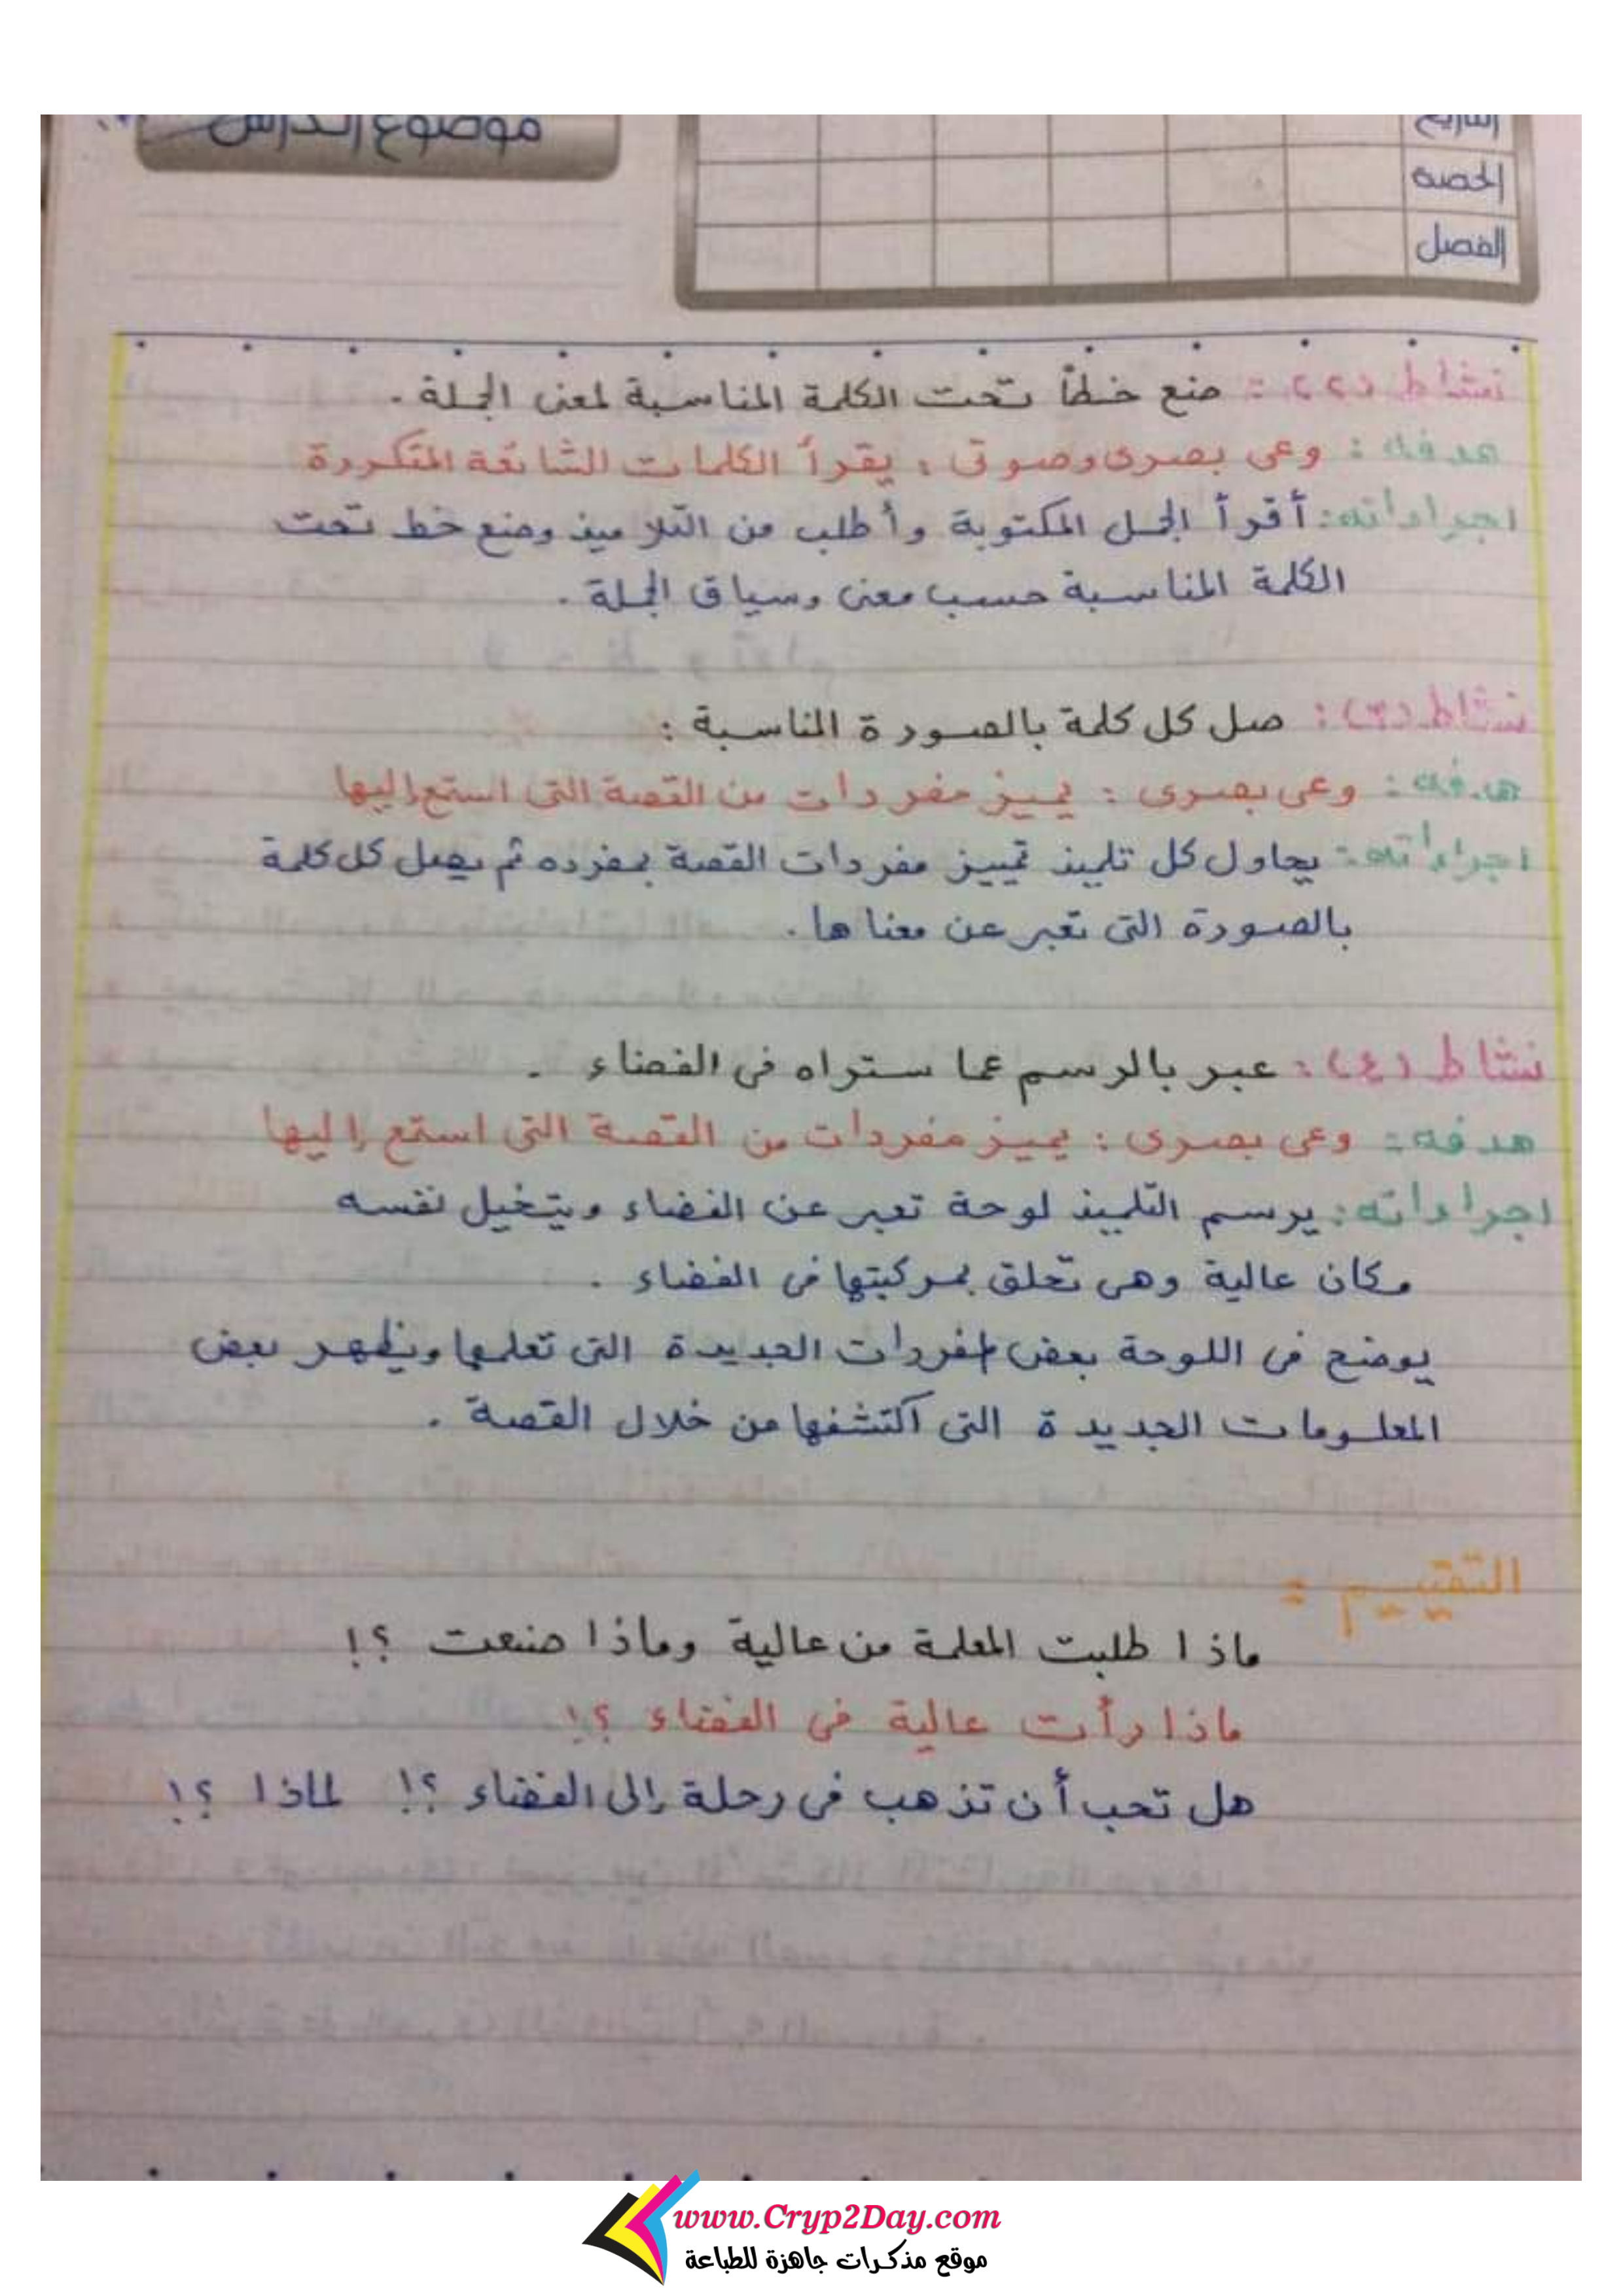 موضوع الدرس
التاريخ
الحصة
الفصل
نشاط (٢) : ضع خطاً تحت الكلمة المناسبة لمعنى الجملة .
هدفه : وعى بصرى وصوتى : يقرأ الكلمات الشائعة المتكررة
اجراءاته : أقرأ الجمل المكتوبة وأطلب من التلاميذ وضع خط تحت
الكلمة المناسبة حسب معنى وسياق الجملة .
نشاط (٣) : صل كل كلمة بالصورة المناسبة :
هدفه : وعى بصرى : يميز مفردات من القصة التى استمع إليها
اجراءاته : يحاول كل تلميذ تمييز مفردات القصة بمفرده ثم يصل كل كلمة
بالصورة التى تعبر عن معناها .
نشاط (٤) : عبر بالرسم عما ستراه فى الفضاء .
هدفه : وعى بصرى : يميز مفردات من القصة التى استمع إليها
اجراءاته : يرسم التلميذ لوحة تعبر عن الفضاء ويتخيل نفسه
مكان عالية وهى تحلق بمركبتها فى الفضاء .
يوضح فى اللوحة بعض المفردات الجديدة التى تعلمها ويظهر بعض
المعلومات الجديدة التى اكتشفها من خلال القصة .
التقييم :
ماذا طلبت المعلمة من عالية وماذا صنعت ؟!
ماذا رأت عالية فى الفضاء ؟!
هل تحب أن تذهب فى رحلة إلى الفضاء ؟! لماذا ؟!
www.Cryp2Day.com
موقع مذكرات جاهزة للطباعة